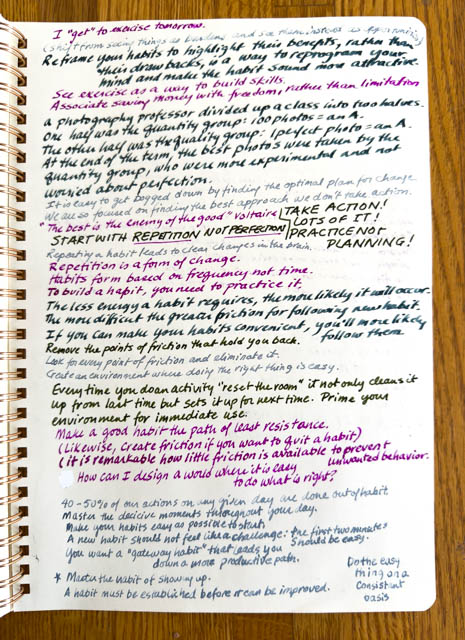 I "get" to exercise tomorrow.
(shift from seeing things as burdens and see them instead as opportunities)
Reframe your habits to highlight their benefits, rather than
their drawbacks, is a way to reprogram your
mind and make the habit sound more attractive.
See exercise as a way to build skills.
Associate saving money with freedom, rather than limitation
a photography professor divided up a class into two halves.
One half was the quantity group: 100 photos = an A.
The other half was the quality group: 1 perfect photo = an A.
At the end of the term, the best photos were taken by the
quantity group, who were more experimental and not
worried about perfection.
It is easy to get bogged down by finding the optimal plan for change
We are so focused on finding the best approach we don't take action.
"The best is the enemy of the good" Voltaire
START WITH REPETITION NOT PERFECTION
TAKE ACTION!
LOTS OF IT!
PRACTICE NOT
PLANNING!
Repeating a habit leads to clear changes in the brain.
Repetition is a form of change.
Habits form based on frequency not time.
To build a habit, you need to practice it.
The less energy a habit requires, the more likely it will occur.
The more difficult the greater friction for following new habit.
If you can make your habits convenient, you'll more likely
follow them
Remove the points of friction that hold you back.
Look for every point of friction and eliminate it.
Create an environment where doing the right thing is easy.
Every time you do an activity "reset the room" it not only cleans it
up from last time but sets it up for next time. Prime your
environment for immediate use.
Make a good habit the path of least resistance.
(Likewise, create friction if you want to quit a habit)
(it is remarkable how little friction is available to prevent
unwanted behavior.
How can I design a world where it is easy
to do what is right?
40-50% of our actions on any given day are done out of habit.
Master the decisive moments throughout your day.
Make your habits easy as possible to start.
A new habit should not feel like a challenge: the first two minutes
should be easy.
You want a "gateway habit" that leads you
down a more productive path.
* Master the habit of showing up.
A habit must be established before it can be improved.
Do the easy
thing on a
consistant
basis